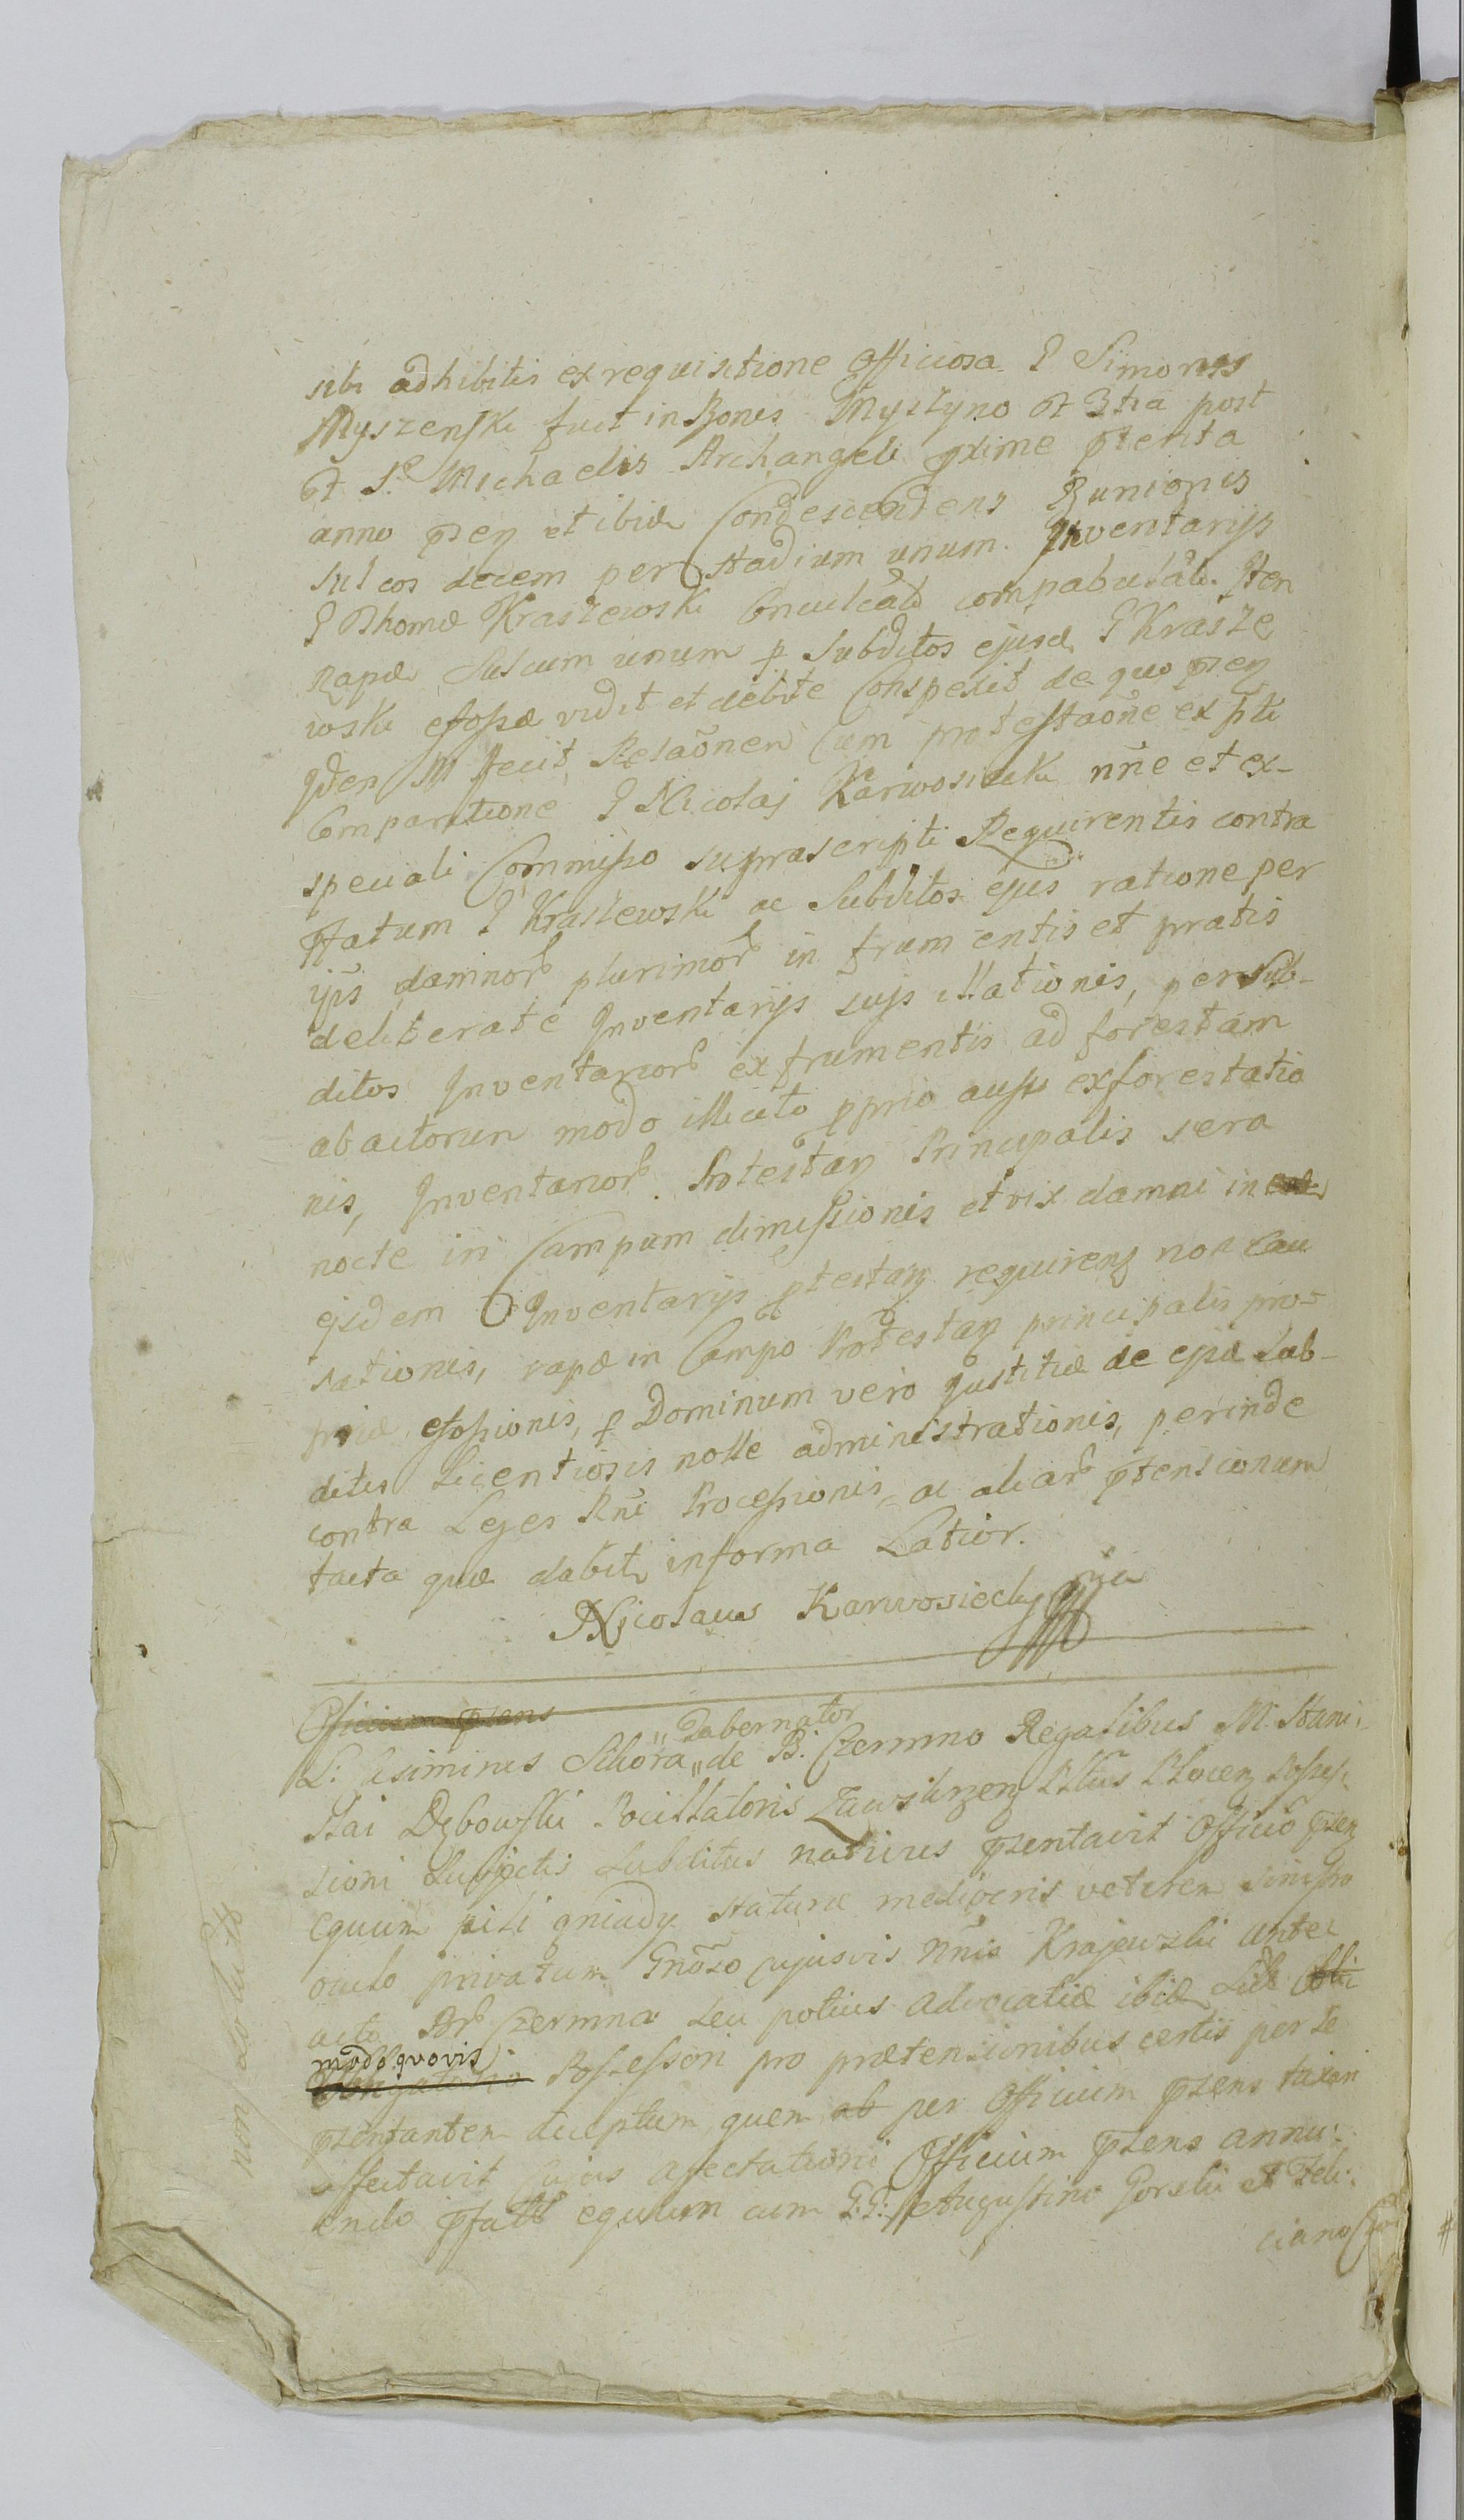 sibi adhibitis ex requisitione Officiosa G Simonis
Myszenski fuit in Bonis Myszyno et 3tia post
et S. Michaelis Archangeli pxime pterita
anno psen et ibid Condescendens Runionis
sulcos decem per stadium unum Inventarijs
G Thomæ Kraszewski Conculcat compabulat. Item
Rapæ Sulcum unum p Subditos ejusd G Krasze
wski efossæ vidit et debite Conspexit de quo psen
Iden M fecit Relaõnem Cum protestaõne ex pti
Comparitione G Nicolaj Karwosiecki nñe et ex-
speciali Commisso suprascripti Requirentis contra
pfatum G Kraszewski ac Subditos ejus ratione per
ips damnor plurimor in frumentis et pratis
deliberate Inventarijs sujs illationis, per Sub-
ditos Inventarior ex frumentis ad forestam
abactorum modo illicito pprio ausu exforestatio
nis, Inventarior. Protestan Principalis sera
nocte in Campum dimissionis et vix damni in
ejsdem Inventarijs ptestan requirens non cau
sationis, rapæ in Campo Protestan principalis pro-
priæ efossionis, p Dominum vero Justitiæ de ejsd Sub-
ditis Licentiosis nolle administrationis, perinde
contra Leges Rni Processionis, ac aliar ptensionum
tacta quæ dabit informa Latior.
Nicolaus Karwosiecki mp
Officium psens
L: Casimirus Sikora „Tabernator„ de B: Czermno Regalibus M. Stani:
slai Dębowski Pocillatoris Zawskrzen Pttus Plocen Posses:
sioni Subjectis Subditus nativus psentavit Officio psen
equum pili gniady staturæ mediocris veterem sinistro
oculo privatum Gnoso cujusvis Nñis Krajewski antea
acto Br Czermna seu potius Advocatiæ ibid Sub
modo quovis Possessori pro prætensionibus certis per se
psentantem acceptum quem ab per Officium psens taxari
affectavit Cujus affectationi Officium psens annu:
endo pfatt equum cum G:G: Augustino Gorski et Feli:
ciano
non soluit